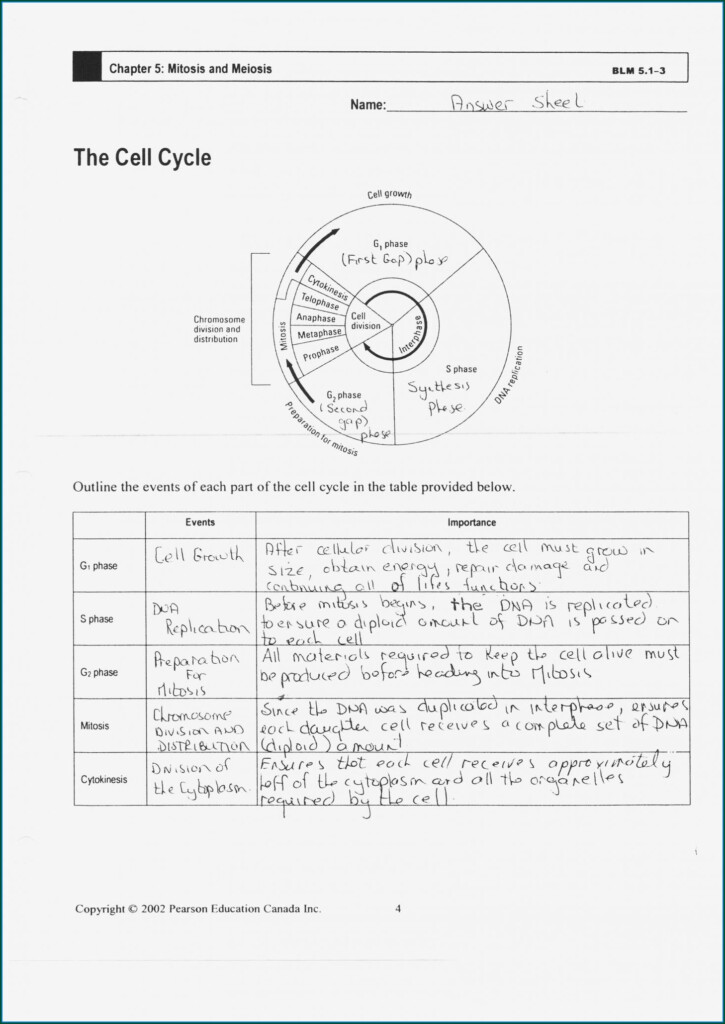 Chapter 5: Mitosis and Meiosis
BLM 5.1–3
Name: Answer Sheet
The Cell Cycle
Cell growth
G1 phase
(First Gap) phase
Cytokinesis
Telophase
Anaphase
Metaphase
Prophase
Mitosis
Cell
division
Interphase
Chromosome
division and
distribution
S phase
Synthesis
Phase
DNA replication
G2 phase
(Second
gap)
phase
Preparation for mitosis
Outline the events of each part of the cell cycle in the table provided below.
Events
Importance
G1 phase
Cell Growth
After cellular division, the cell must grow in
size, obtain energy, repair damage and
continuing all of lifes functions.
S phase
DNA
Replication
Before mitosis begins, the DNA is replicated
to ensure a diploid amount of DNA is passed on
to each cell
G2 phase
Preparation
For
Mitosis
All materials required to keep the cell alive must
be produced before heading into Mitosis
Mitosis
Chromosome
DIVISION AND
DISTRIBUTION
Since the DNA was duplicated in interphase, ensures
each daughter cell receives a complete set of DNA
(diploid) amount
Cytokinesis
Division of
the Cytoplasm.
Ensures that each cell receives approximately
half of the cytoplasm and all the organelles
required by the cell.
Copyright © 2002 Pearson Education Canada Inc.
4